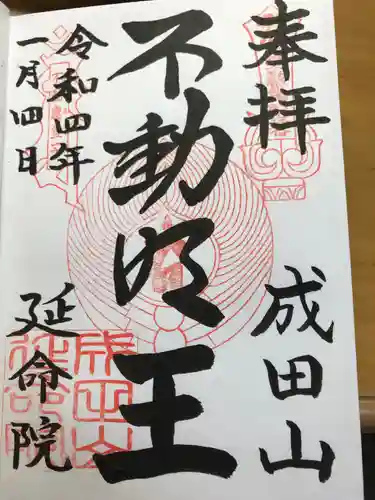 奉拝
成田山
不動明王
令和四年
一月四日
延命院